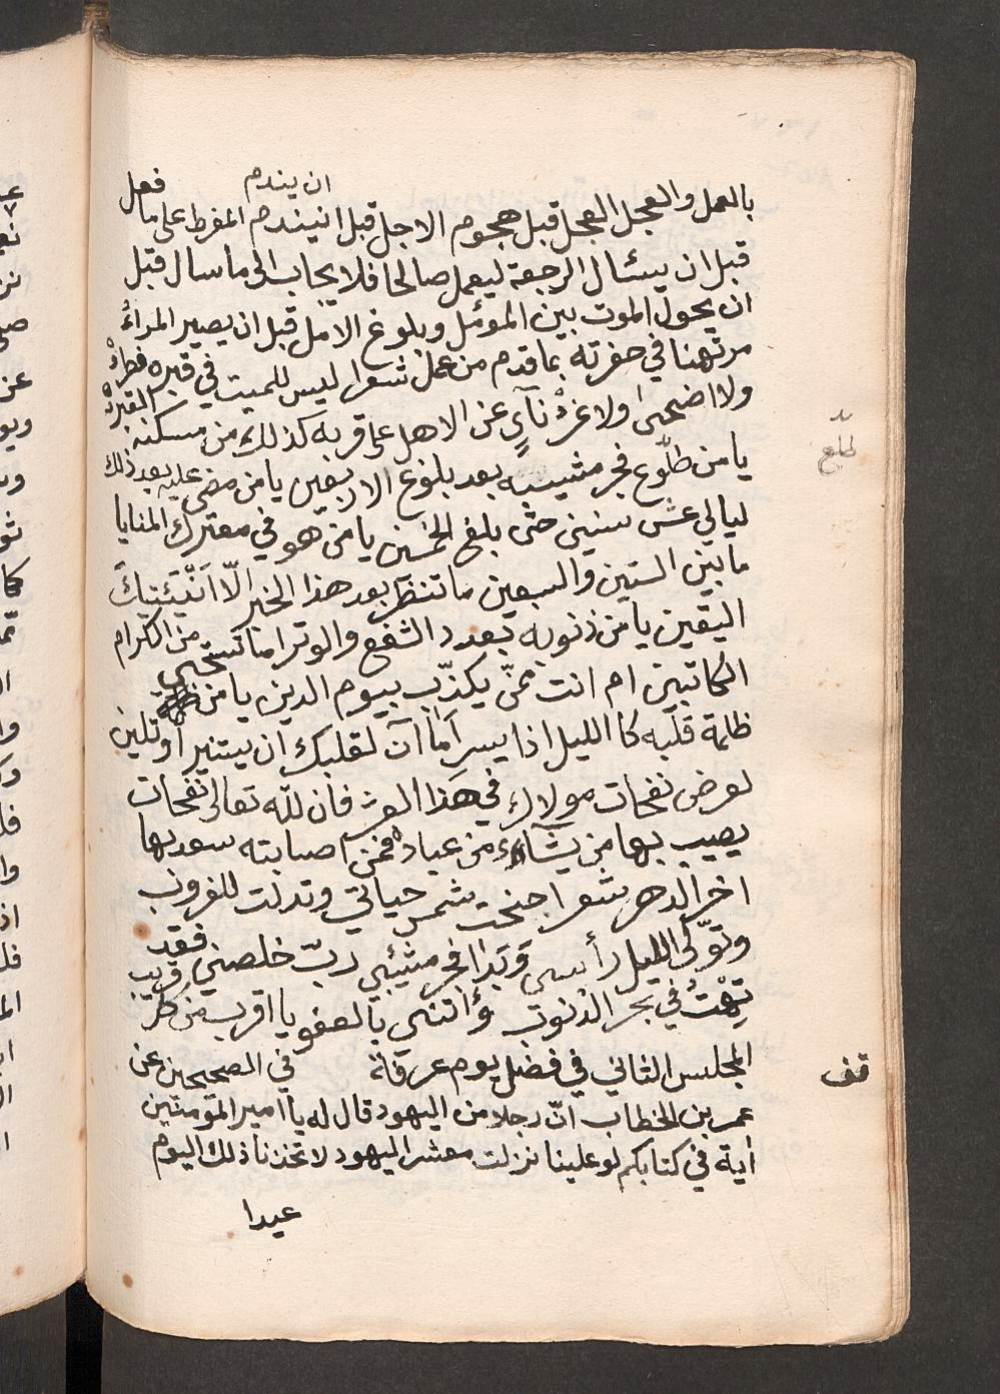 ان يندم
بالعمل والعجل العجل قبل هجوم الاجل قبل انيندم المفرط على ما فعل
قبل ان يسئال الرجعة ليعمل صالحا فلا يجاب الى ما سال قبل
ان يحول الموت بين المومل وبلوغ الامل قبل ان يصير المراءُ
مرتهنا في حفرته بما قدم من عمل شعرا ليس للميت في قبره فطراْ
ولا اضحى ولا غرْ نآىٍ عن الاهل على قربه كذلك من مسكنه القبرْ
يا من طلّوع فجر مشيبه بعد بلوغ الاربعين يا من مضى عليه بعد ذلك
ليالي عشر سنين حتى بلغ الخمسين يا من هو في معترك المنايا
ما بين الستين والسبعين ما تنتظر بعد هذا الخبر الّا اَنْيَئتيكَ
اليقين يا من ذنوبه بعدد الشفع والوتر اما تستحي من الكرام
الكاتبين ام انت ممنّ يكذّب بيوم الدين يا من
ظلمة قلبه كا الليل اذا يسر اَما آن لقلبك ان يستنير أو تلين
لعرض نفحات مولاك في هَذا العشر فان لله تعالى نفحات
يصيب بها من يشآء من عباده فمن اصابته سعد بها
اخر الدهر شعرا جنحت شمس حياتي وتدلت للغروب
وتوّلى الليل رأسى وَبَدا فجر مشيبي ربّ خلصني فقد
تِهْتُ في بحر الذنوب وَأنتنى بالعفو يا اقرب من كلّ قريب
المجلس الثاني في فضل يوم عرفة في الصحيحين عن
عمر بن الخطاب انّ رجلا من اليهود قال له يا امير المؤمنين
اٰية في كتابكم لو علينا نزلت معشر اليهود لاتخذنا ذلك اليوم
عيدا
طلّع
قف